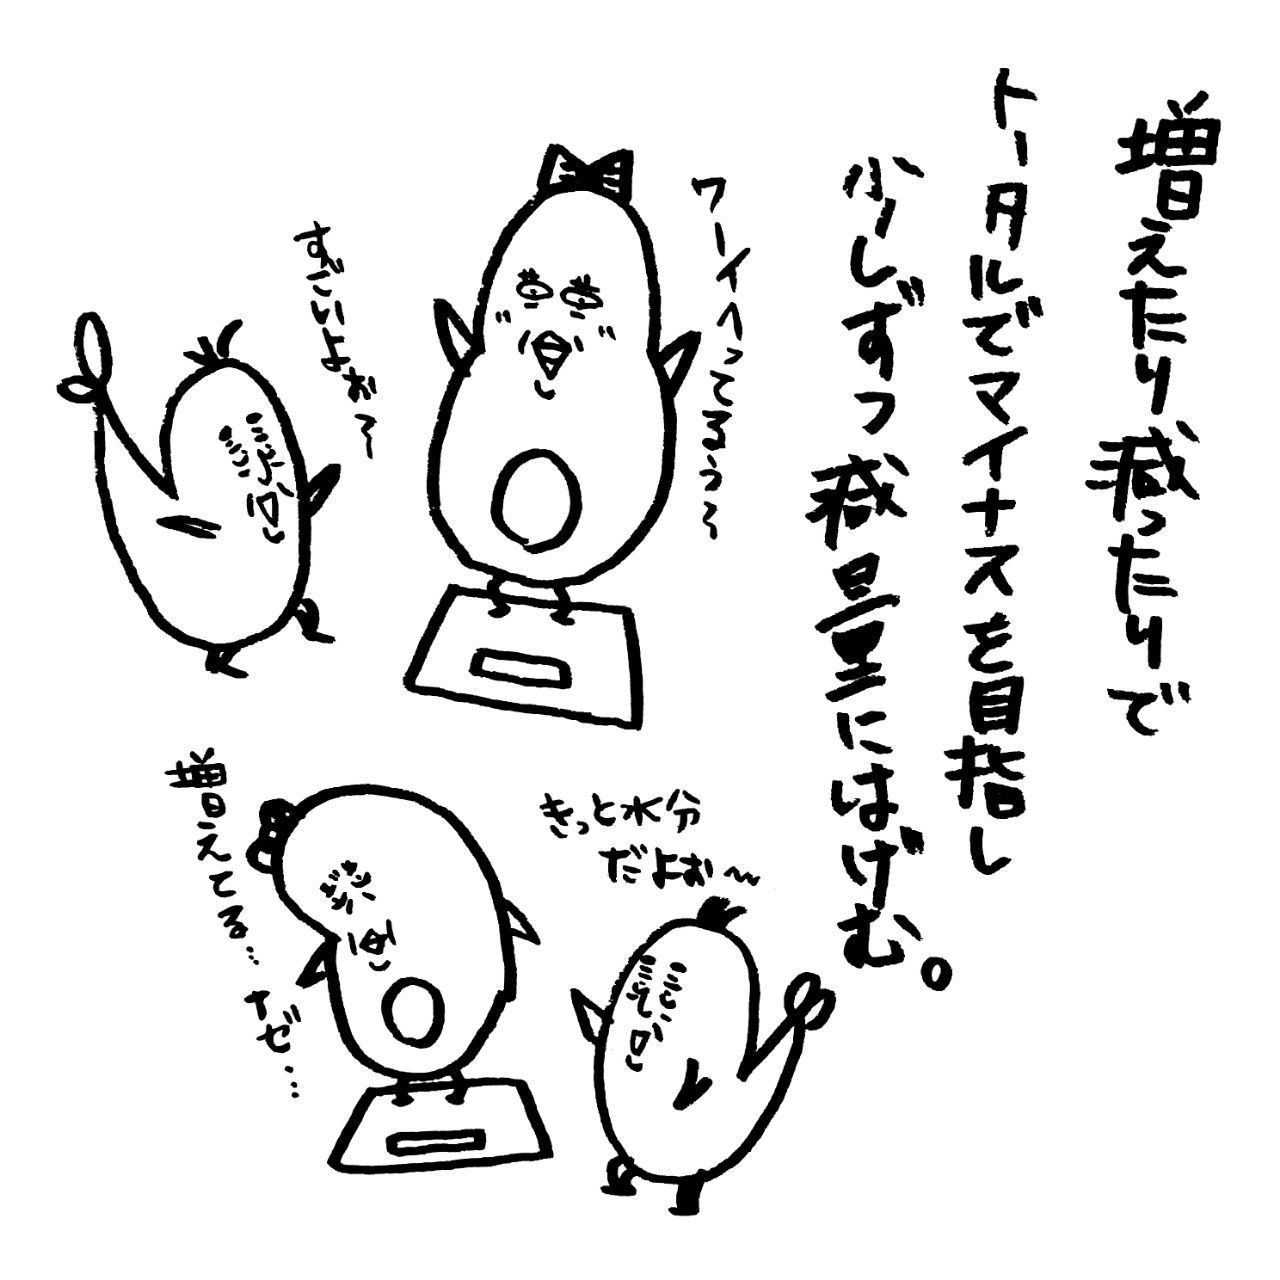 増えたり減ったりで
トータルでマイナスを目指し
少しずつ減量にはげむ。
ワーイへってるぅ〜
すごいよぉ〜
きっと水分
だよぉ〜
増えてる…
ナゼ…